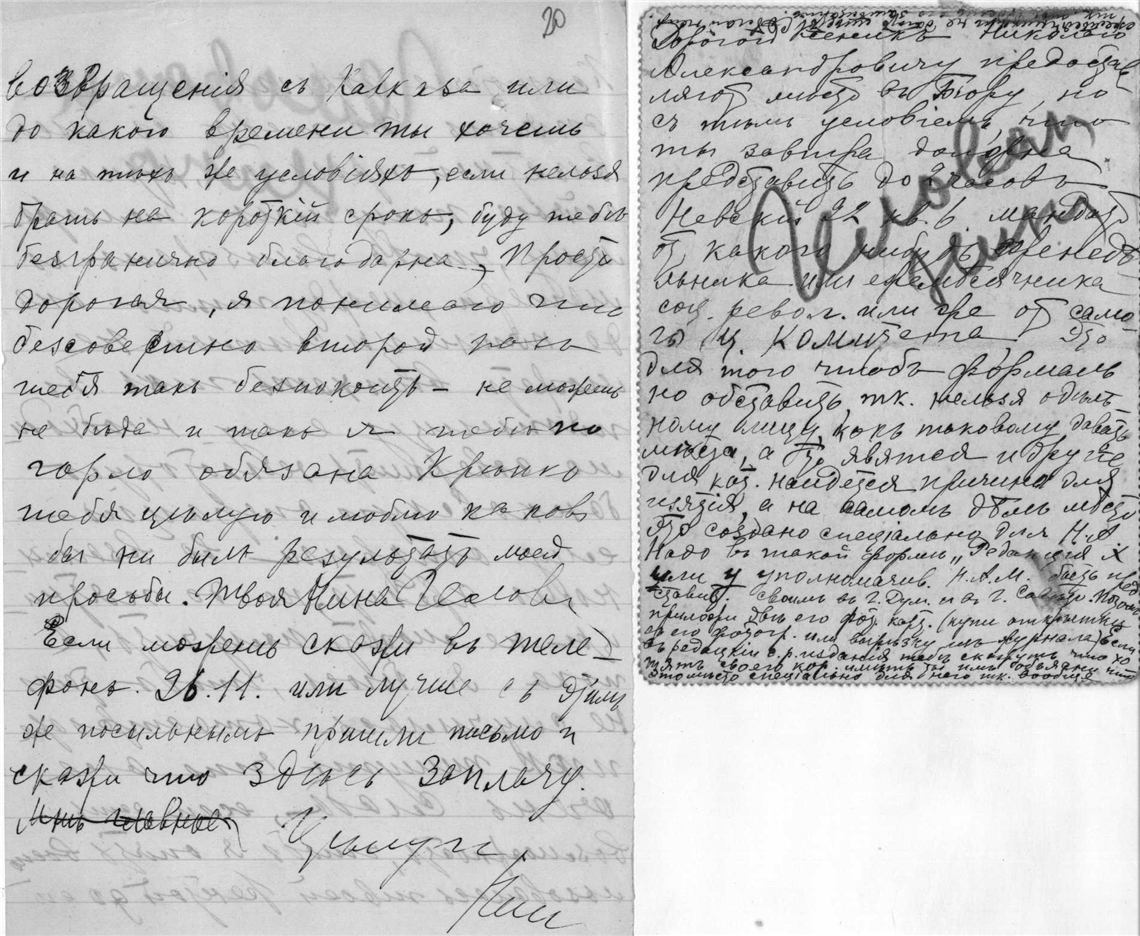 20
возвращенія съ Кавказа или
до какого времени ты хочешь
и на техъ же условіяхъ, если нельзя
брать на короткій срокъ, буду тебѣ
безгранично благодарна, Прости
дорогая, я понимаю что
безсовестно второй разъ
тебя такъ безпокоить – не можешь
не беда и такъ я тебѣ по
горло обязана Крепко
тебя целую и люблю каков
бы ни былъ результатъ моей
просьбы. Твоя Нина
Если можешь скажи въ теле-
фонъ. 26.11. или лучше съ этимъ
же посыльнымъ пришли письмо и
скажи что здесь заплачу.
Мнѣ главное
Целую
Дорогой Николаю
Александровичу предостав
ляютъ место въ Бюру, но
съ темъ условіемъ, что
ты завтра должна
представить до 2 часовъ
Невскій 22 кв. 6 мандатъ
отъ какого нибудь еженедѣ
льника или ежемѣсячника
соц. револ. или же отъ само
го Ц Комитета Это
для того чтобъ формаль
но обставить, т.к. нельзя одъ
ному лицу, какъ таковому давать
места, а то явятся и другіе
для кот. найдется причина для
изятія, а на самомъ дѣлѣ место
это создано спеціально для Н.А
Надо въ такой форме „Редакція Х
или У уполномачив. Н.А.М. быть пред
ставит. своимъ въ Г. Дум. и въ Г.
приложи двѣ его фот. карт. (купи открытку
съ его фотогр. или вырезку изъ журнала) Если
въ редакціи с.р. изданія тебе скажутъ что хо
тятъ своего кор. иметь ты имъ объясни что
это место спеціально для т.к. вообще